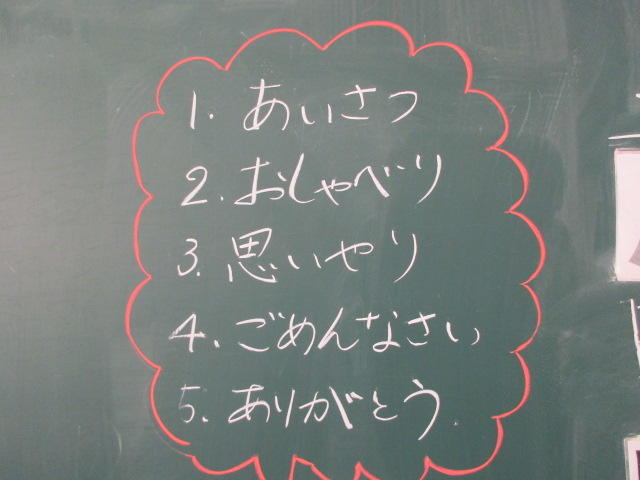 1. あいさつ
2. おしゃべり
3. 思いやり
4. ごめんなさい
5. ありがとう.